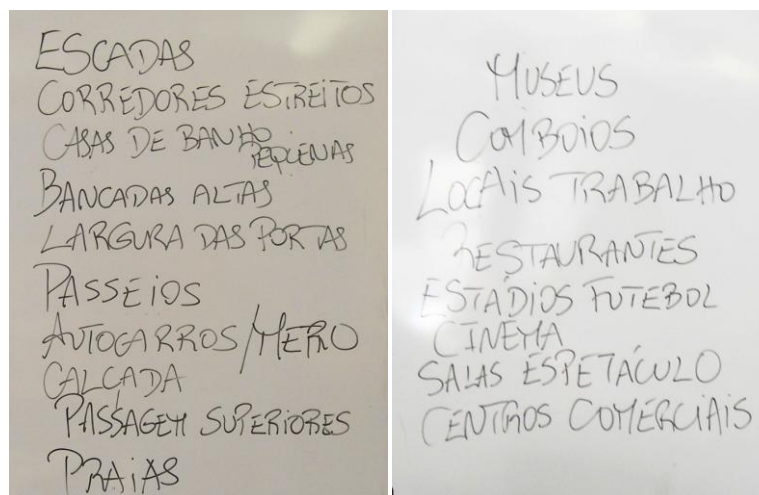 ESCADAS
CORREDORES ESTREITOS
CASAS DE BANHO
PEQUENAS
BANCADAS ALTAS
LARGURA DAS PORTAS
PASSEIOS
AUTOCARROS/METRO
CALÇADA
PASSAGEM SUPERIORES
PRAIAS
MUSEUS
COMBOIOS
LOCAIS TRABALHO
RESTAURANTES
ESTÁDIOS FUTEBOL
CINEMA
SALAS ESPETÁCULO
CENTROS COMERCIAIS